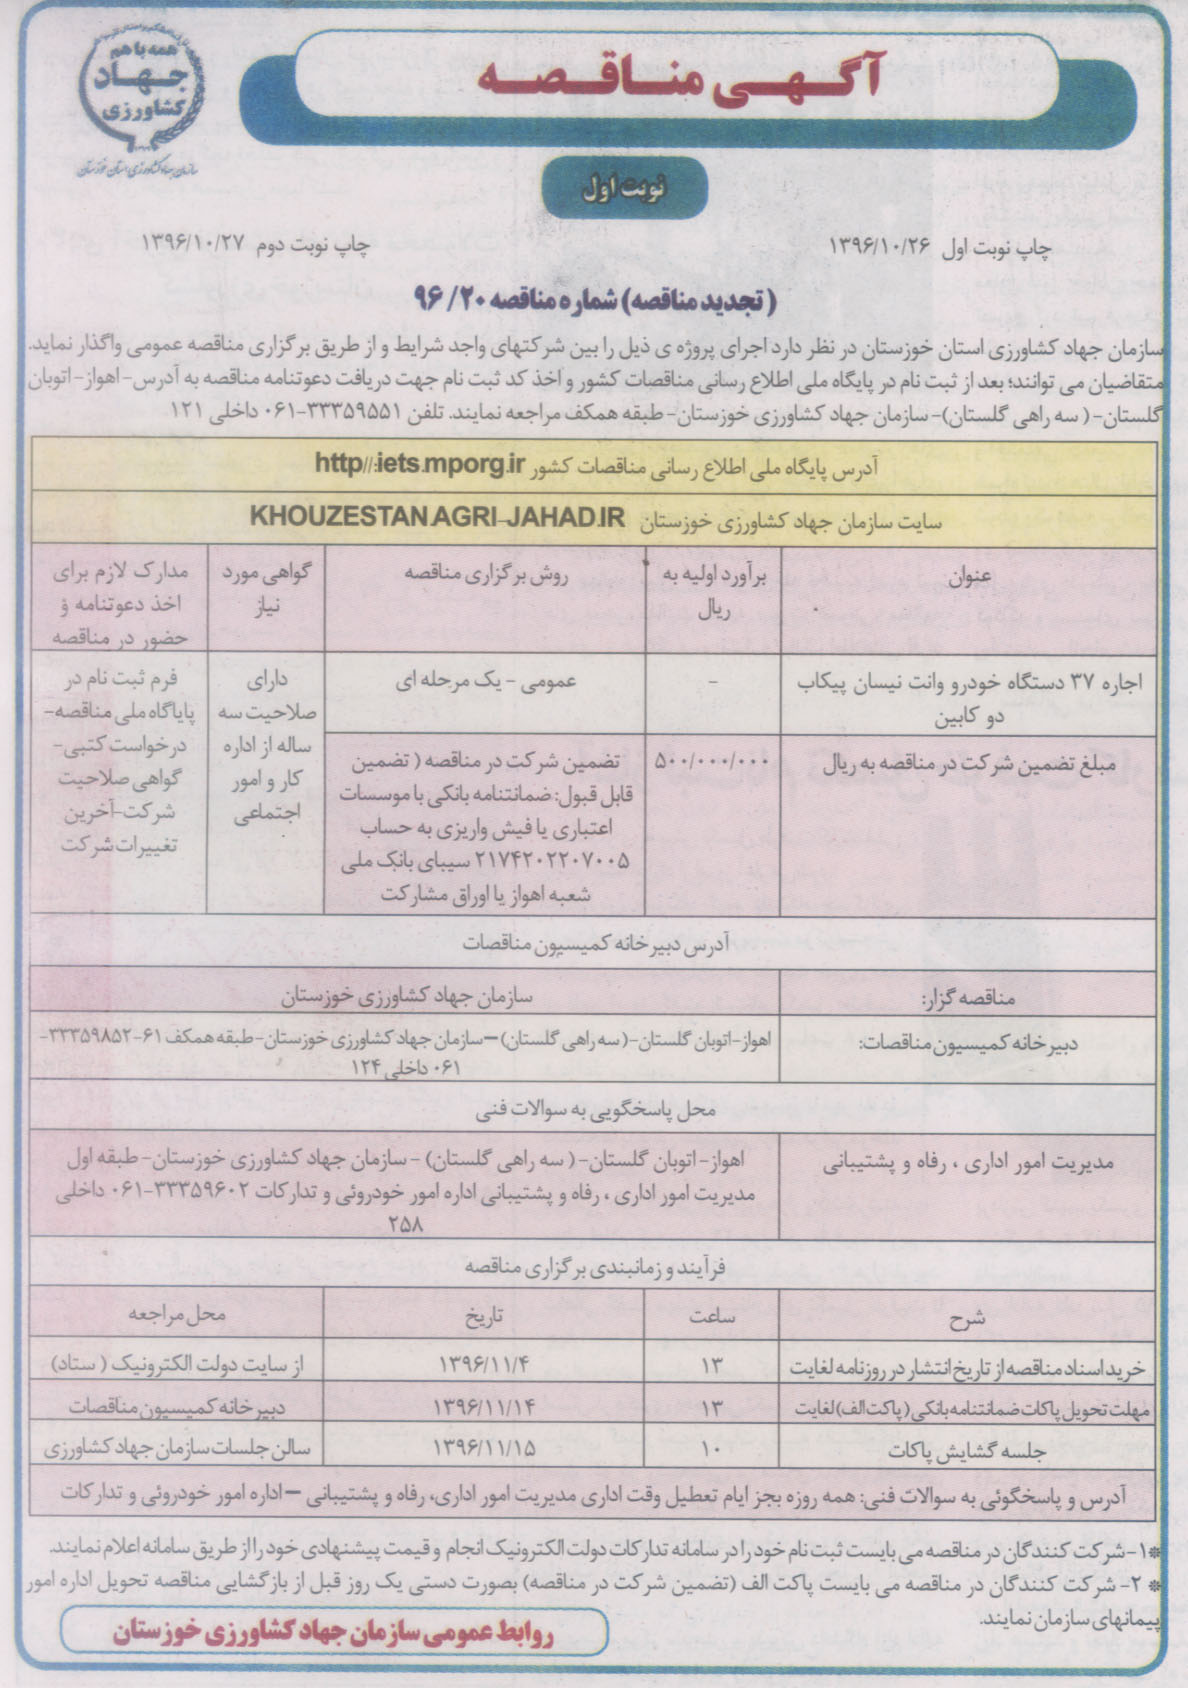 همه با هم
جهاد
کشاورزی
سازمان جهاد کشاورزی استان خوزستان
آگهی مناقصه
نوبت اول
چاپ نوبت اول ۱۳۹۶/۱۰/۲۶
چاپ نوبت دوم ۱۳۹۶/۱۰/۲۷
(تجدید مناقصه) شماره مناقصه ۹۶/۲۰
سازمان جهاد کشاورزی استان خوزستان در نظر دارد اجرای پروژه ی ذیل را بین شرکتهای واجد شرایط و از طریق برگزاری مناقصه عمومی واگذار نماید.
متقاضیان می توانند؛ بعد از ثبت نام در پایگاه ملی اطلاع رسانی مناقصات کشور و اخذ کد ثبت نام جهت دریافت دعوتنامه مناقصه به آدرس- اهواز- اتوبان
گلستان- ( سه راهی گلستان)- سازمان جهاد کشاورزی خوزستان- طبقه همکف مراجعه نمایند. تلفن ۳۳۳۵۹۵۵۱-۰۶۱ داخلی ۱۲۱
آدرس پایگاه ملی اطلاع رسانی مناقصات کشور http//:iets.mporg.ir
سایت سازمان جهاد کشاورزی خوزستان KHOUZESTAN.AGRI-JAHAD.IR
عنوان
برآورد اولیه به
ریال
روش برگزاری مناقصه
گواهی مورد
نیاز
مدارک لازم برای
اخذ دعوتنامه و
حضور در مناقصه
اجاره ۳۷ دستگاه خودرو وانت نیسان پیکاب
دو کابین
-
عمومی - یک مرحله ای
دارای
صلاحیت سه
ساله از اداره
کار و امور
اجتماعی
فرم ثبت نام در
پایاگاه ملی مناقصه-
درخواست کتبی-
گواهی صلاحیت
شرکت-آخرین
تغییرات شرکت
مبلغ تضمین شرکت در مناقصه به ریال
۵۰۰/۰۰۰/۰۰۰
تضمین شرکت در مناقصه ( تضمین
قابل قبول: ضمانتنامه بانکی با موسسات
اعتباری یا فیش واریزی به حساب
۲۱۷۴۲۰۲۲۰۷۰۰۵ سیبای بانک ملی
شعبه اهواز یا اوراق مشارکت
آدرس دبیرخانه کمیسیون مناقصات
مناقصه گزار:
سازمان جهاد کشاورزی خوزستان
دبیرخانه کمیسیون مناقصات:
اهواز-اتوبان گلستان-( سه راهی گلستان) –سازمان جهاد کشاورزی خوزستان-طبقه همکف ۶۱-۳۳۳۵۹۸۵۲-
۰۶۱ داخلی ۱۲۴
محل پاسخگویی به سوالات فنی
مدیریت امور اداری ، رفاه و پشتیبانی
اهواز- اتوبان گلستان- ( سه راهی گلستان) - سازمان جهاد کشاورزی خوزستان- طبقه اول
مدیریت امور اداری ، رفاه و پشتیبانی اداره امور خودروئی و تدارکات ۳۳۳۵۹۶۰۲-۰۶۱ داخلی
۲۵۸
فرآیند و زمانبندی برگزاری مناقصه
شرح
ساعت
تاریخ
محل مراجعه
خرید اسناد مناقصه از تاریخ انتشار در روزنامه لغایت
۱۳
۱۳۹۶/۱۱/۴
از سایت دولت الکترونیک ( ستاد)
مهلت تحویل پاکات ضمانتنامه بانکی (پاکت الف) لغایت
۱۳
۱۳۹۶/۱۱/۱۴
دبیرخانه کمیسیون مناقصات
جلسه گشایش پاکات
۱۰
۱۳۹۶/۱۱/۱۵
سالن جلسات سازمان جهاد کشاورزی
آدرس و پاسخگوئی به سوالات فنی: همه روزه بجز ایام تعطیل وقت اداری مدیریت امور اداری، رفاه و پشتیبانی –اداره امور خودروئی و تدارکات
*۱-شرکت کنندگان در مناقصه می بایست ثبت نام خود را در سامانه تدارکات دولت الکترونیک انجام و قیمت پیشنهادی خود را از طریق سامانه اعلام نمایند.
* ۲- شرکت کنندگان در مناقصه می بایست پاکت الف (تضمین شرکت در مناقصه) بصورت دستی یک روز قبل از بازگشایی مناقصه تحویل اداره امور
پیمانهای سازمان نمایند.
روابط عمومی سازمان جهاد کشاورزی خوزستان